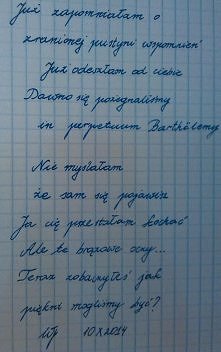 Już zapomniałam o
zranionej pustyni wspomnień
Już odeszłam od ciebie
Dawno się pożegnaliśmy
in perpetuum Barthélemy
Nie myślałam
że sam się pojawisz
Ja cię przestałam kochać
Ale te brązowe oczy...
Teraz zobaczyłeś jak
piękni mogliśmy być?
10 X 2014